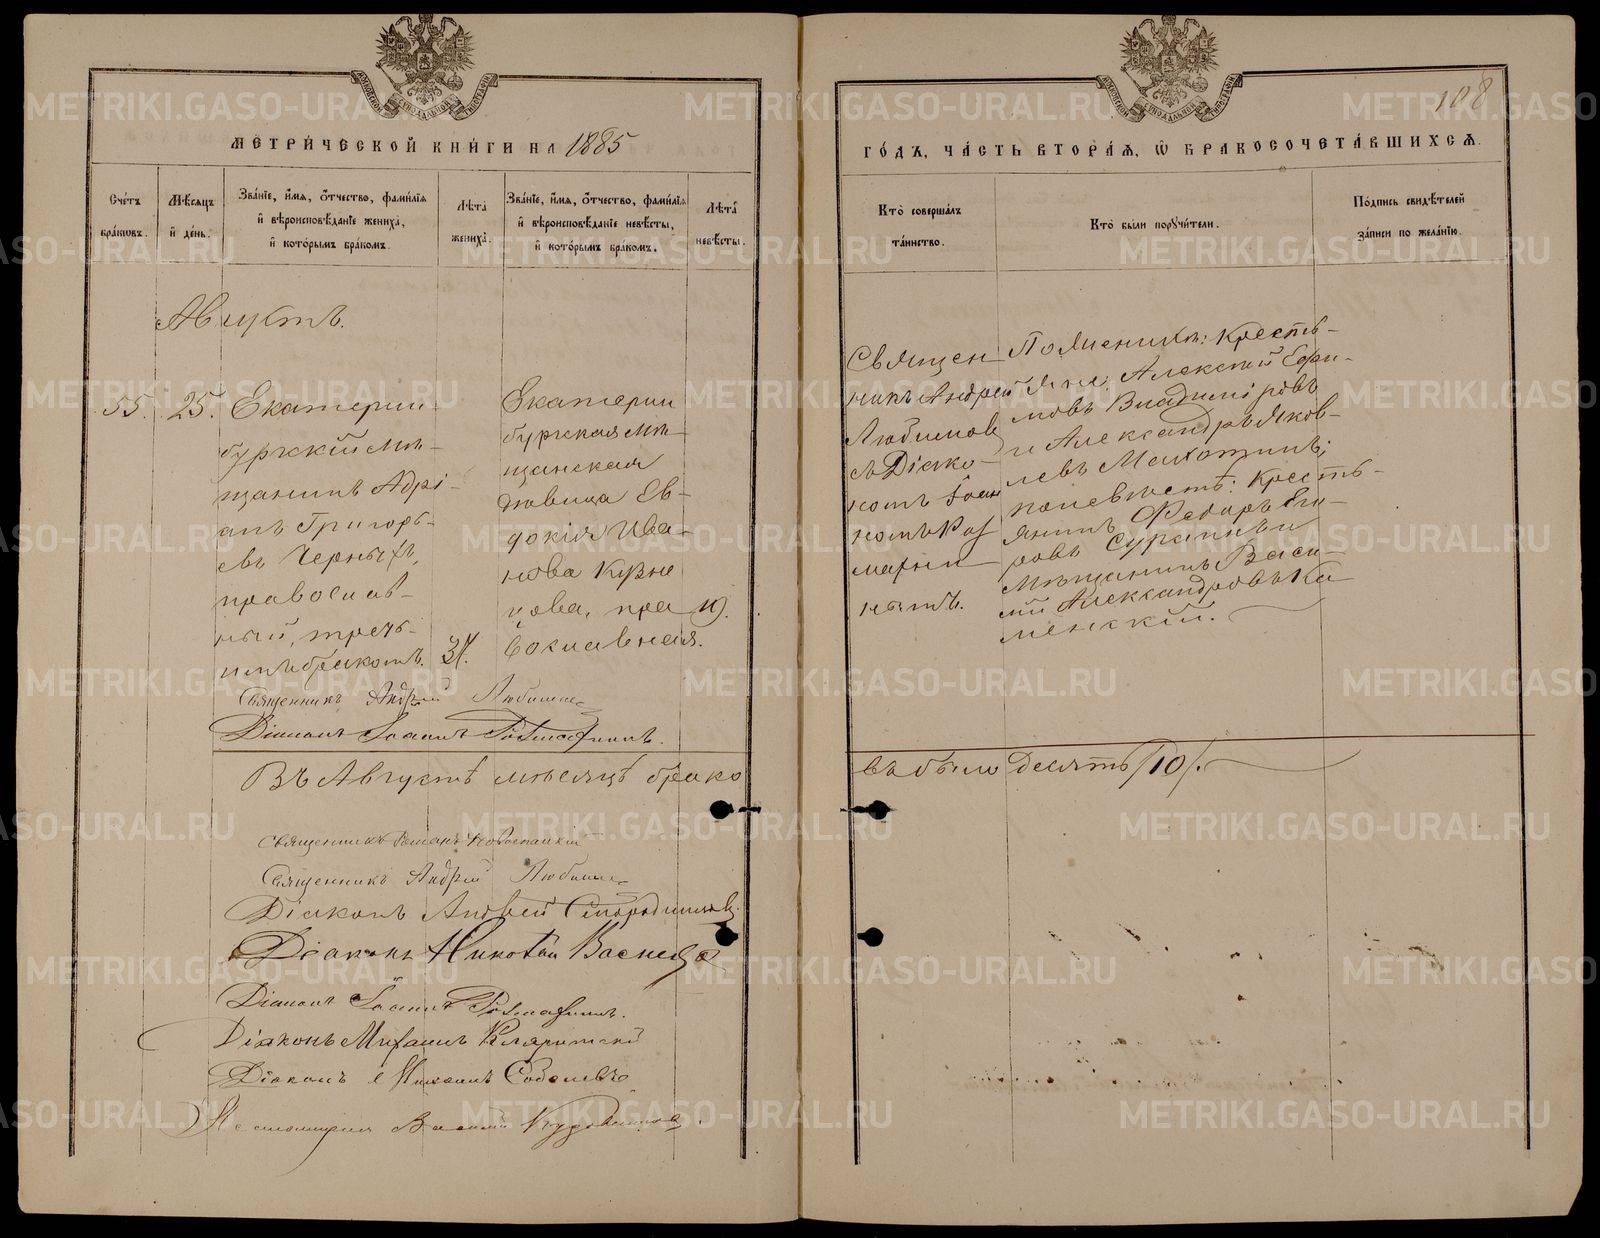 МЕТРИЧЕСКОЙ КНИГИ НА 1885
Счетъ браковъ.
Мѣсяцъ и день.
Званіе, имя, отчество, фамилія и вѣроисповѣданіе жениха, и которымъ бракомъ.
Лѣта жениха.
Званіе, имя, отчество, фамилія и вѣроисповѣданіе невѣсты, и которымъ бракомъ.
Лѣта невѣсты.
Августъ.
55.
25.
Екатерин-
бургскій мѣ-
щанинъ Адрі-
анъ Григорь-
евъ Черныхъ,
православ-
ный, треть-
имъ бракомъ.
34.
Екатерин
бургская мѣ-
щанская
дѣвица Ев-
докія Ива-
нова Кузне
цова, пра
вославная.
19.
Священникъ Андрей Любимовъ
Діаконъ Іоаннъ
Въ Августѣ мѣсяцѣ брако
Священникъ
Священникъ Андрей Любимовъ
Діаконъ Андрей Смородинцевъ.
Діаконъ Николай Васнецовъ
Діаконъ Іоаннъ
Діаконъ Михаилъ
Діаконъ Михаилъ Соболевъ
Псаломщикъ Василій
108
ГОДЪ, ЧАСТЬ ВТОРАЯ, Ѡ БРАКОСОЧЕТАВШИХСЯ.
Кто совершалъ таинство.
Кто были поручители.
Подпись свидѣтелей записи по желанію.
Священ
никъ Андрей
Любимовъ
съ Діако-
номъ Іоан
номъ
По женихѣ: Кресть-
яне: Алексѣй Ефи-
мовъ Владиміровъ
и Александръ Яков-
левъ
по невѣстѣ: Кресть-
янинъ Федоръ Его-
ровъ и
Мѣщанинъ Васи-
лій Александровъ Ка
менскій.
въ было десять /10/.
METRIKI.GASO-URAL.RU